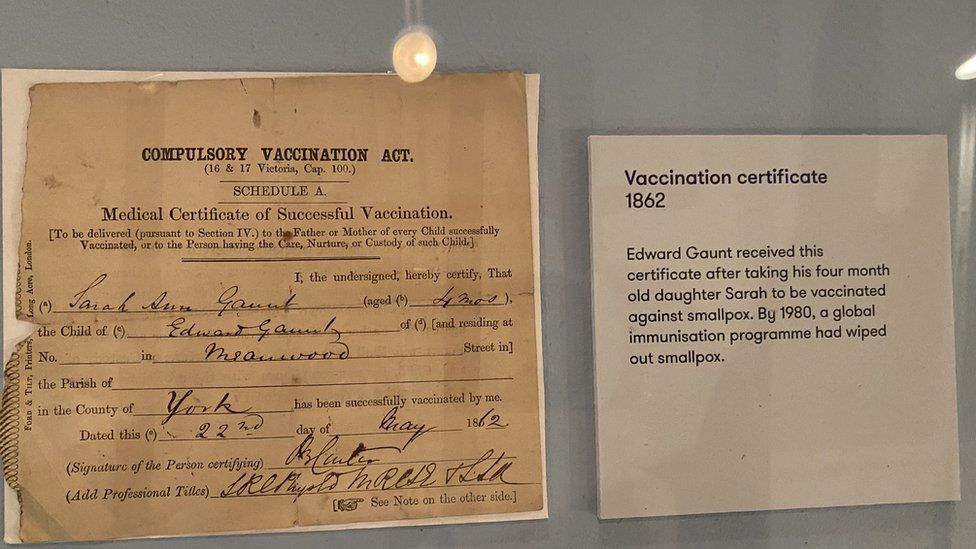 COMPULSORY VACCINATION ACT.
(16 & 17 Victoria, Cap. 100.)
SCHEDULE A.
Medical Certificate of Successful Vaccination.
[To be delivered (pursuant to Section IV.) to the Father or Mother of every Child successfully
Vaccinated, or to the Person having the Care, Nurture, or Custody of such Child.]
I, the undersigned, hereby certify, That
(a) Sarah Ann Gaunt (aged (b) 4 mos ),
the Child of (c) Edward Gaunt of (d) [and residing at
No. in Meanwood Street in]
the Parish of
in the County of York has been successfully vaccinated by me.
Dated this (e) 22nd day of May 1862.
(Signature of the Person certifying)
(Add Professional Titles)
See Note on the other side.]
FORD & TILT, Printers, Long Acre, London.
Vaccination certificate
1862
Edward Gaunt received this
certificate after taking his four month
old daughter Sarah to be vaccinated
against smallpox. By 1980, a global
immunisation programme had wiped
out smallpox.